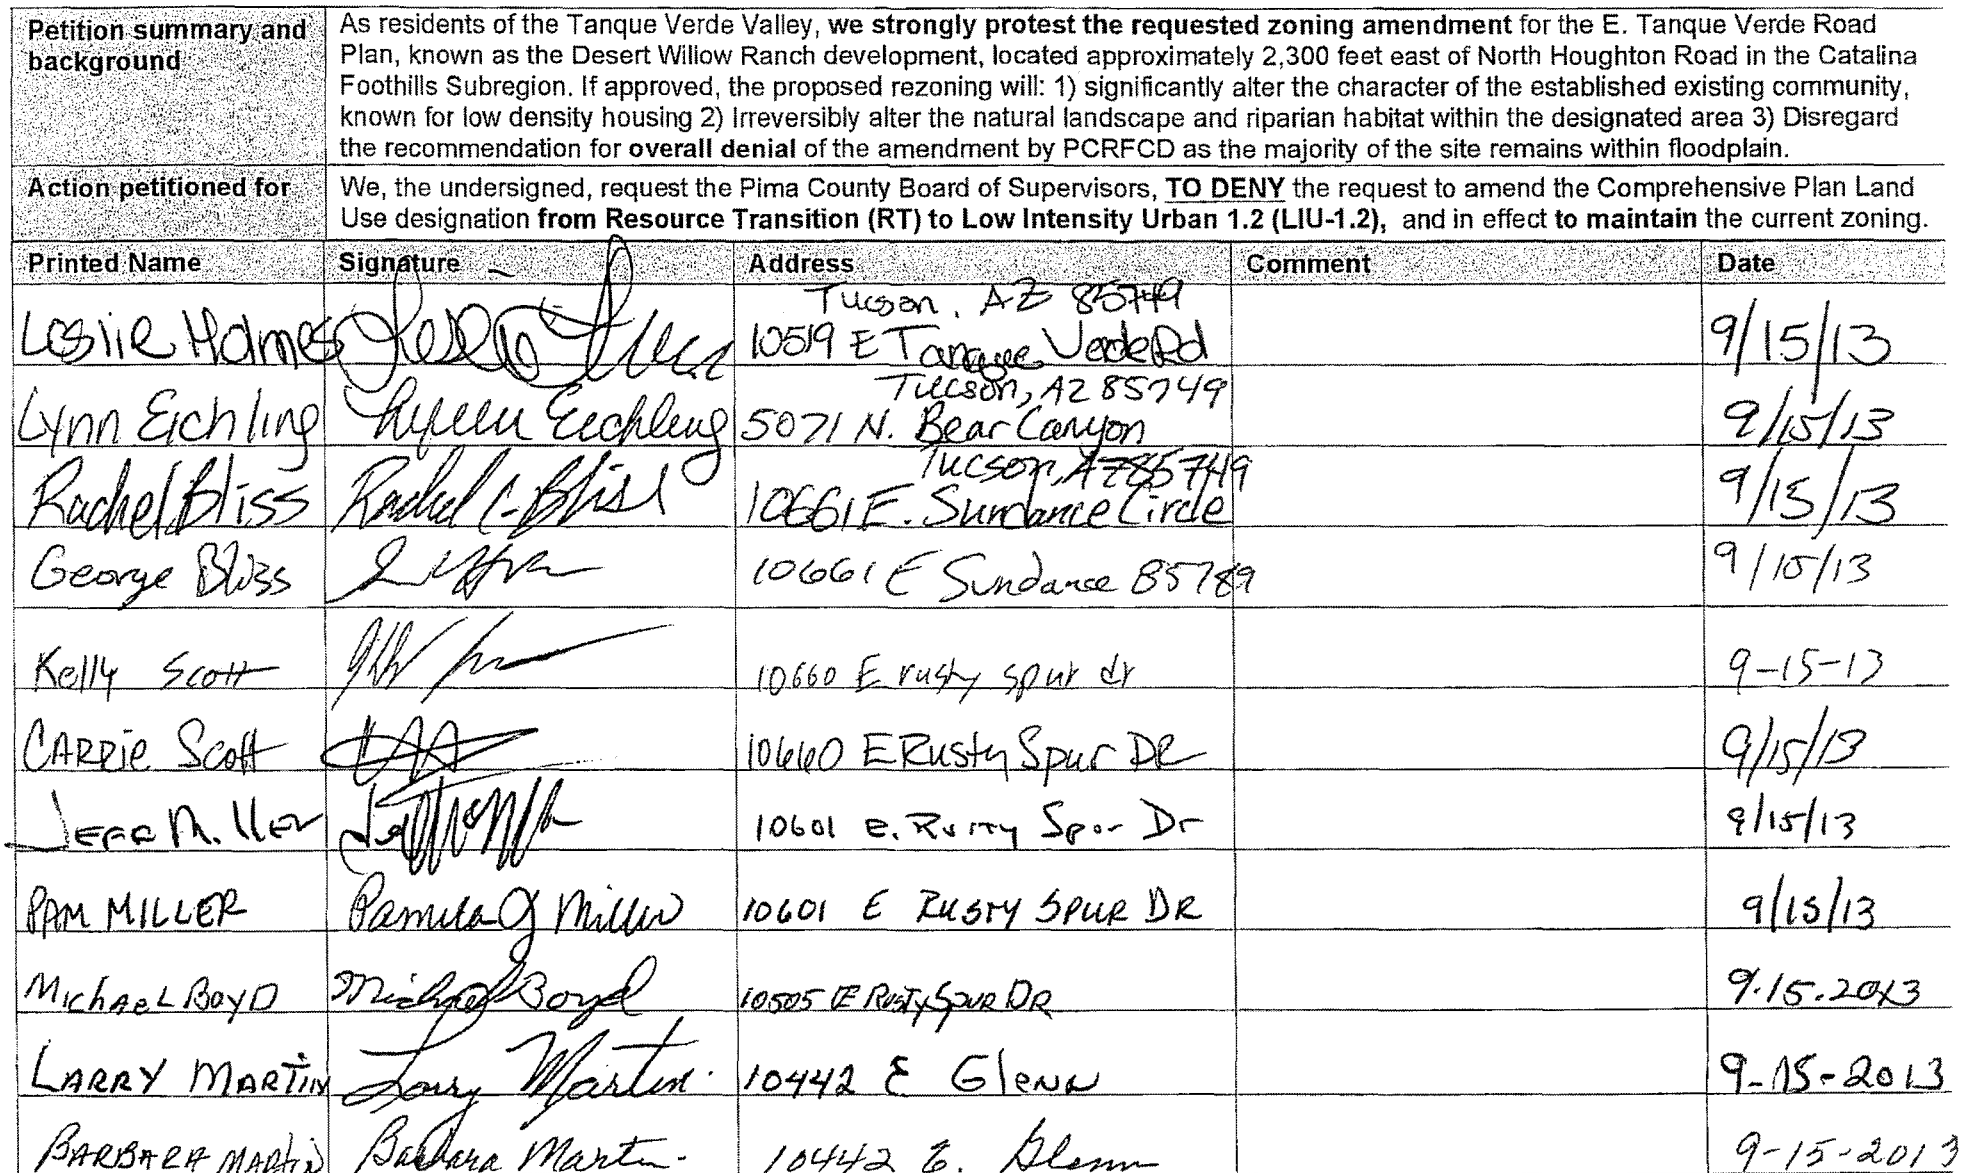 Petition summary and background
As residents of the Tanque Verde Valley, we strongly protest the requested zoning amendment for the E. Tanque Verde Road
Plan, known as the Desert Willow Ranch development, located approximately 2,300 feet east of North Houghton Road in the Catalina
Foothills Subregion. If approved, the proposed rezoning will: 1) significantly alter the character of the established existing community,
known for low density housing 2) Irreversibly alter the natural landscape and riparian habitat within the designated area 3) Disregard
the recommendation for overall denial of the amendment by PCRFCD as the majority of the site remains within floodplain.
Action petitioned for
We, the undersigned, request the Pima County Board of Supervisors, TO DENY the request to amend the Comprehensive Plan Land
Use designation from Resource Transition (RT) to Low Intensity Urban 1.2 (LIU-1.2), and in effect to maintain the current zoning.
Printed Name Signature Address Comment Date
Tucson, AZ 85749
Leslie Holmes 10519 E Tanque Verde Rd 9/15/13
Tucson, AZ 85749
Lynn Eichling Lynn Eichling 5071 N. Bear Canyon 9/15/13
Tucson, AZ 85749
Rachel Bliss Rachel C. Bliss 10661 E. Sundance Circle 9/15/13
George Bliss 10661 E Sundance 9/15/13
Kelly Scott 10660 E rusty spur dr 9-15-13
CARRie Scott 10660 E Rusty Spur DR 9/15/13
Jeff Miller 10601 e. Rusty Spur Dr 9/15/13
PAM MILLER Pamela J Miller 10601 E RUSTY SPUR DR 9/15/13
MichaeL BoyD Michael Boyd 10505 E RUSTY SPUR DR 9.15.2013
LARRY MARTIN Larry Martin 10442 E Glenn 9-15-2013
BARBARA MARTIN Barbara Martin 10442 E. Glenn 9-15-2013